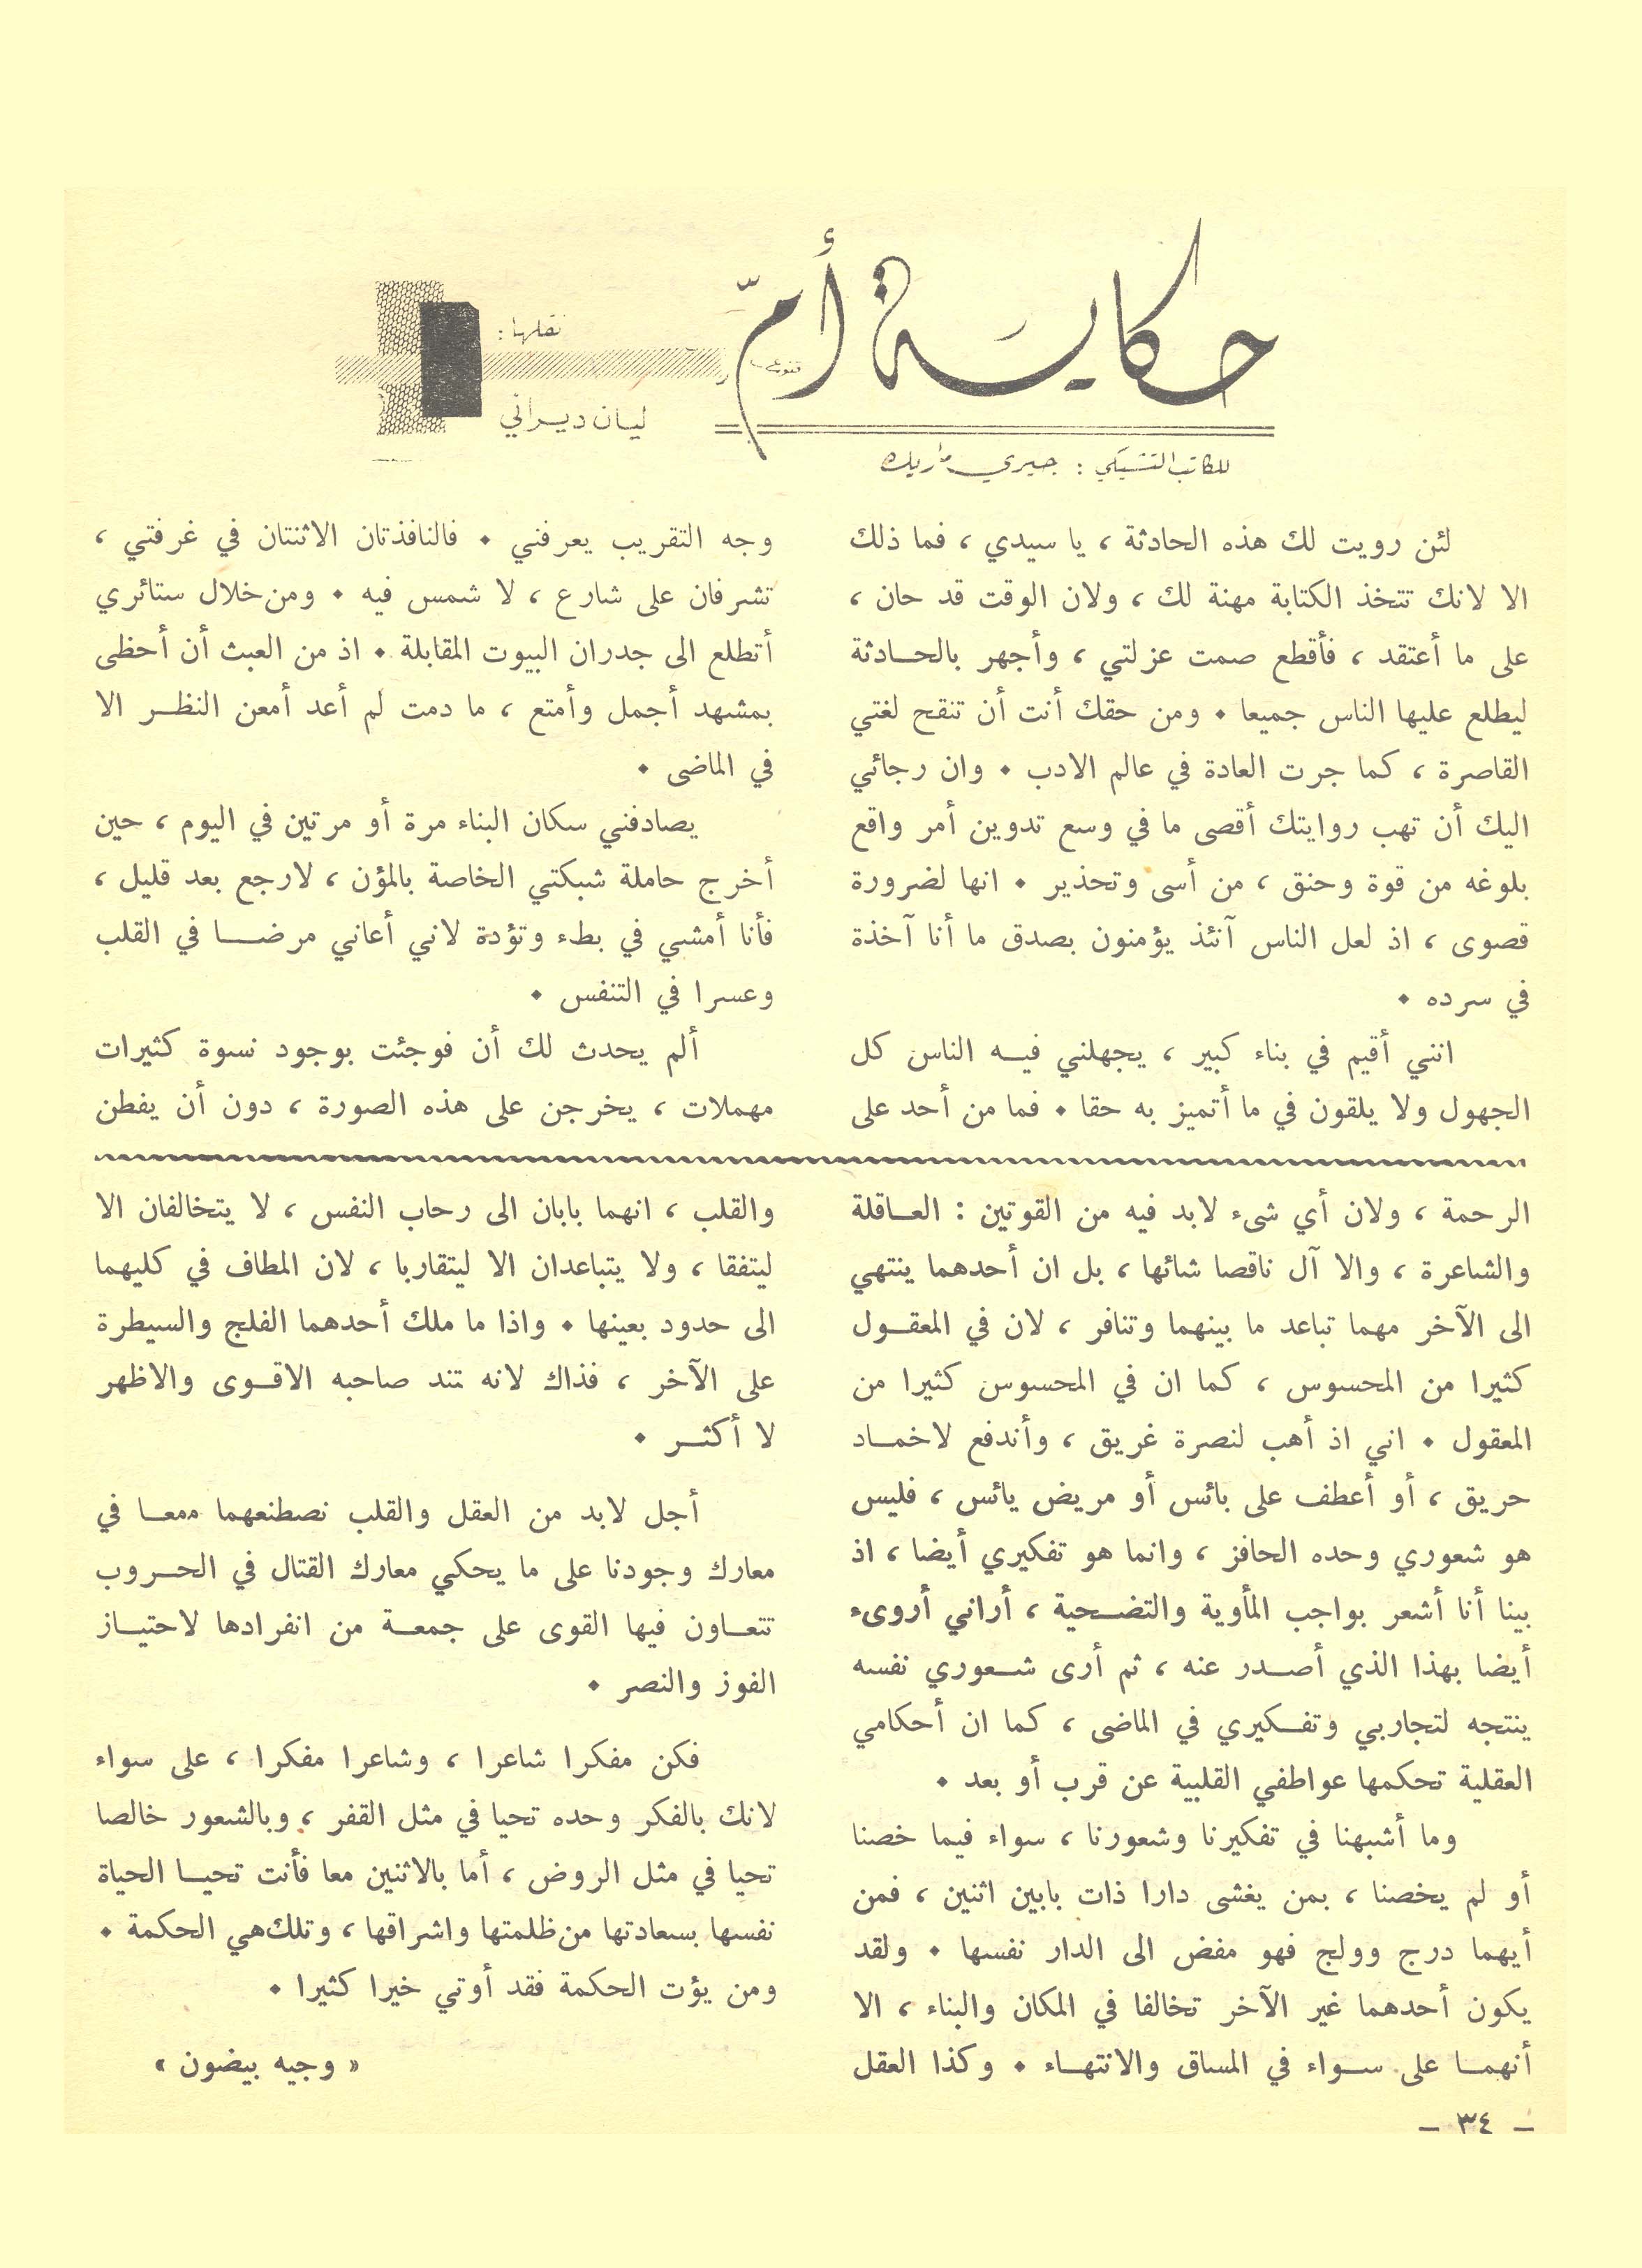 حكاية أمّ
للكاتب التشيكي : جيري ماريك
نقلها :
ليان ديراني
لئن رويت لك هذه الحادثة ، يا سيدي ، فما ذلك
الا لانك تتخذ الكتابة مهنة لك ، ولان الوقت قد حان ،
على ما أعتقد ، فأقطع صمت عزلتي ، وأجهر بالحادثة
ليطلع عليها الناس جميعا • ومن حقك أنت أن تنقح لغتي
القاصرة ، كما جرت العادة في عالم الادب • وان رجائي
اليك أن تهب روايتك أقصى ما في وسع تدوين أمر واقع
بلوغه من قوة وحنق ، من أسى وتحذير • انها لضرورة
قصوى ، اذ لعل الناس آنئذ يؤمنون بصدق ما أنا آخذة
في سرده •
انني أقيم في بناء كبير ، يجهلني فيه الناس كل
الجهول ولا يلقون في ما أتميز به حقا • فما من أحد على
وجه التقريب يعرفني • فالنافذتان الاثنتان في غرفتي ،
تشرفان على شارع ، لا شمس فيه • ومن خلال ستائري
أتطلع الى جدران البيوت المقابلة • اذ من العبث أن أحظى
بمشهد أجمل وأمتع ، ما دمت لم أعد أمعن النظر الا
في الماضى •
يصادفني سكان البناء مرة أو مرتين في اليوم ، حين
أخرج حاملة شبكتي الخاصة بالمؤن ، لارجع بعد قليل ،
فأنا أمشي في بطء وتؤدة لاني أعاني مرضا في القلب
وعسرا في التنفس •
ألم يحدث لك أن فوجئت بوجود نسوة كثيرات
مهملات ، يخرجن على هذه الصورة ، دون أن يفطن
الرحمة ، ولان أي شىء لابد فيه من القوتين : العاقلة
والشاعرة ، والا آل ناقصا شائها ، بل ان أحدهما ينتهي
الى الآخر مهما تباعد ما بينهما وتنافر ، لان في المعقول
كثيرا من المحسوس ، كما ان في المحسوس كثيرا من
المعقول • اني اذ أهب لنصرة غريق ، وأندفع لاخماد
حريق ، أو أعطف على بائس أو مريض يائس ، فليس
هو شعوري وحده الحافز ، وانما هو تفكيري أيضا ، اذ
بينا أنا أشعر بواجب المأوية والتضحية ، أراني أروىء
أيضا بهذا الذي أصدر عنه ، ثم أرى شعوري نفسه
ينتجه لتجاربي وتفكيري في الماضى ، كما ان أحكامي
العقلية تحكمها عواطفي القلبية عن قرب أو بعد •
وما أشبهنا في تفكيرنا وشعورنا ، سواء فيما خصنا
أو لم يخصنا ، بمن يغشى دارا ذات بابين اثنين ، فمن
أيهما درج وولج فهو مفض الى الدار نفسها • ولقد
يكون أحدهما غير الآخر تخالفا في المكان والبناء ، الا
أنهما على سواء في المساق والانتهاء • وكذا العقل
والقلب ، انهما بابان الى رحاب النفس ، لا يتخالفان الا
ليتفقا ، ولا يتباعدان الا ليتقاربا ، لان المطاف في كليهما
الى حدود بعينها • واذا ما ملك أحدهما الفلج والسيطرة
على الآخر ، فذاك لانه تند صاحبه الاقوى والاظهر
لا أكثر •
أجل لابد من العقل والقلب نصطنعهما ممعا في
معارك وجودنا على ما يحكي معارك القتال في الحروب
تتعاون فيها القوى على جمعة من انفرادها لاحتياز
الفوز والنصر •
فكن مفكرا شاعرا ، وشاعرا مفكرا ، على سواء
لانك بالفكر وحده تحيا في مثل القفر ، وبالشعور خالصا
تحيا في مثل الروض ، أما بالاثنين معا فأنت تحيا الحياة
نفسها بسعادتها من ظلمتها واشراقها ، وتلك هي الحكمة •
ومن يؤت الحكمة فقد أوتي خيرا كثيرا •
« وجيه بيضون »
– ٣٤ –